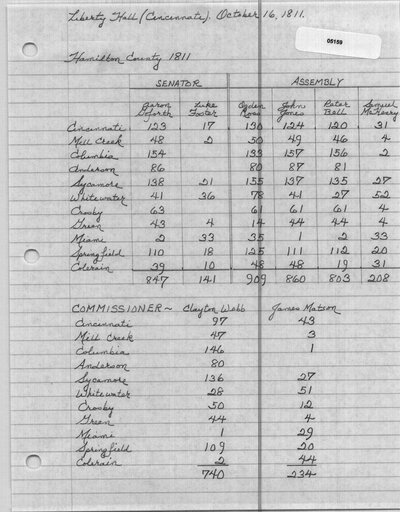 Liberty Hall (Cincinnati). October 16, 1811.
05159
Hamilton County 1811
SENATOR ASSEMBLY
Aaron Goforth Luke Foster Ogden Ross John Jones Peter Bell Samuel McHenry
Cincinnati 123 17 130 124 120 31
Mill Creek 48 2 50 49 46 4
Columbia 154 133 157 156 2
Anderson 86 80 87 81
Sycamore 138 21 155 137 135 27
Whitewater 41 36 78 41 27 52
Crosby 63 61 61 61 4
Green 43 4 14 44 44 4
Miami 2 33 35 1 2 33
Springfield 110 18 125 111 112 20
Colerain 39 10 48 48 19 31
847 141 909 860 803 208
COMMISSIONER ~ Clayton Webb James Matson
Cincinnati 97 43
Mill Creek 47 3
Columbia 146 1
Anderson 80
Sycamore 136 27
Whitewater 28 51
Crosby 50 12
Green 44 4
Miami 1 29
Springfield 109 20
Colerain 2 44
740 234